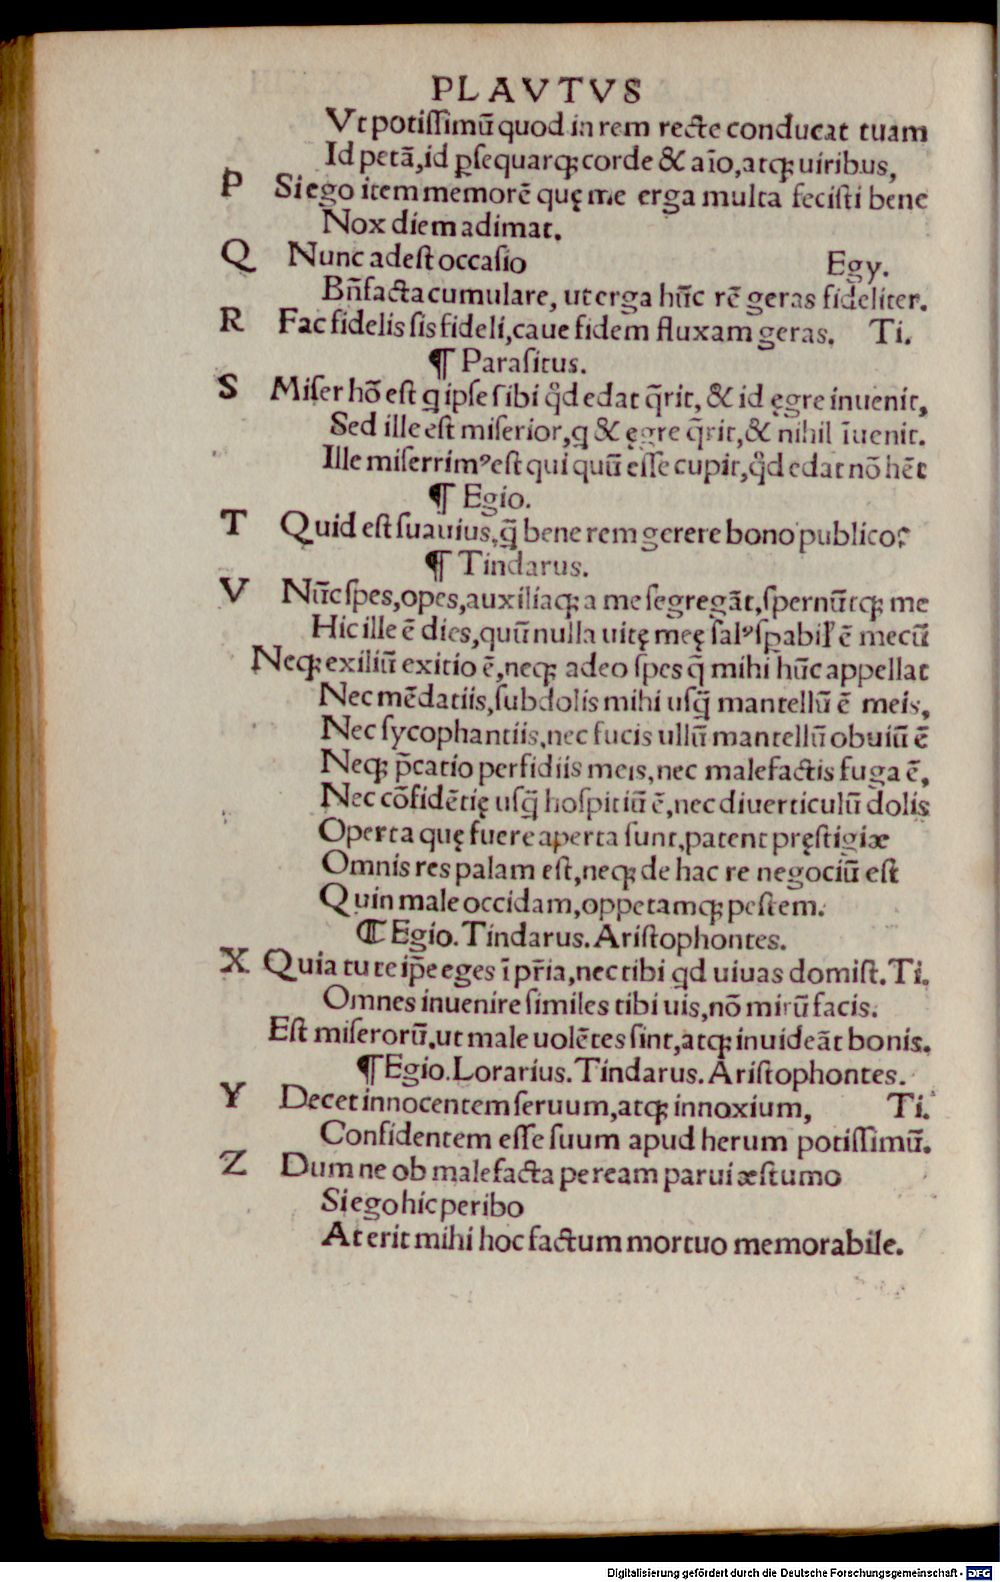 PLAVTVS
Vt potiſſimū quod in rem recte conducat tuam
Id petā, id ꝑſequarqꝫ corde & aīo, atqꝫ uiribus,
P Si ego item memorē quę me erga multa feciſti bene
Nox diem adimat.
Q Nunc adeſt occaſio Egy.
Bn̄facta cumulare, ut erga hūc rē geras fideliter.
R Fac fidelis ſis fideli, caue fidem fluxam geras. Ti.
¶ Paraſitus.
S Miſer hō eſt q ipſe ſibi qͥd edat q̄rit, & id ęgre inuenit,
Sed ille eſt miſerior, q & ęgre q̄rit, & nihil īuenit.
Ille miſerrimꝰ eſt qui quū eſſe cupit, qͥd edat nō hēt
¶ Egio.
T Quid eſt ſuauius, q̄ bene rem gerere bono publico?
¶ Tindarus.
V Nūc ſpes, opes, auxiliaqꝫ a me ſegregāt, ſpernūtqꝫ me
Hic ille ē dies, quū nulla uitę meę ſalꝰ ſꝑabil' ē mecū
Neqꝫ exiliū exitio ē, neqꝫ adeo ſpes q̄ mihi hūc appellat
Nec mēdatiis, ſubdolis mihi uſq̄ mantellū ē meis,
Nec ſycophantiis, nec fucis ullū mantellū obuiū ē
Neqꝫ p̄catio perfidiis meis, nec malefactis fuga ē,
Nec cōfidētię uſq̄ hoſpitiū ē, nec diuerticulū dolis
Operta quę fuere aperta ſunt, patent pręſtigiæ
Omnis res palam eſt, neqꝫ de hac re negociū eſt
Quin male occidam, oppetamqꝫ peſtem.
¶ Egio. Tindarus. Ariſtophontes.
X Quia tu te ip̄e eges ī pr̄ia, nec tibi qd uiuas domiſt. Ti.
Omnes inuenire ſimiles tibi uis, nō mirū facis.
Eſt miſerorū, ut male uolētes ſint, atqꝫ inuideāt bonis.
¶ Egio. Lorarius. Tindarus. Ariſtophontes.
Y Decet innocentem ſeruum, atqꝫ innoxium, Ti.
Confidentem eſſe ſuum apud herum potiſſimū.
Z Dum ne ob malefacta peream parui æſtumo
Si ego hic peribo
At erit mihi hoc factum mortuo memorabile.
Digitalisierung gefördert durch die Deutsche Forschungsgemeinschaft - DFG